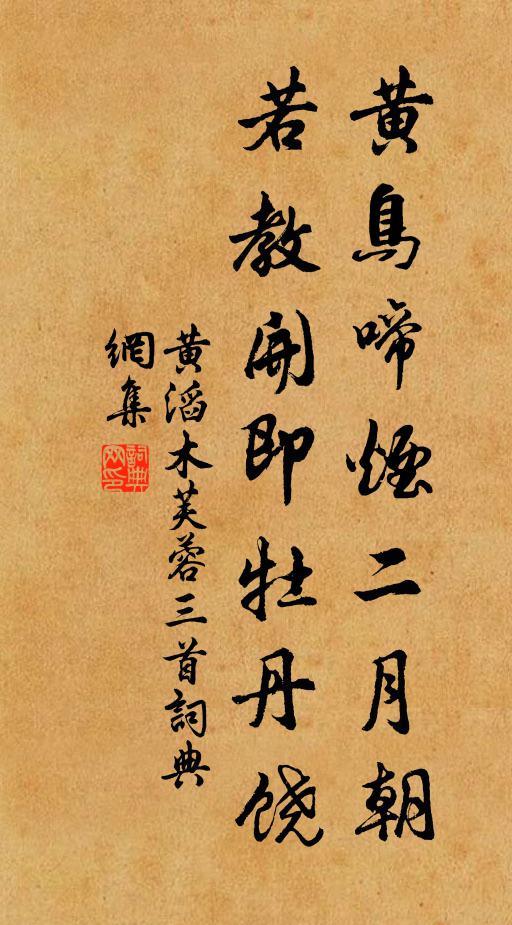 黄鳥啼煙二月朝
若教開即牡丹饒
黄滔木芙蓉三首詞典
網集
詞典
网印